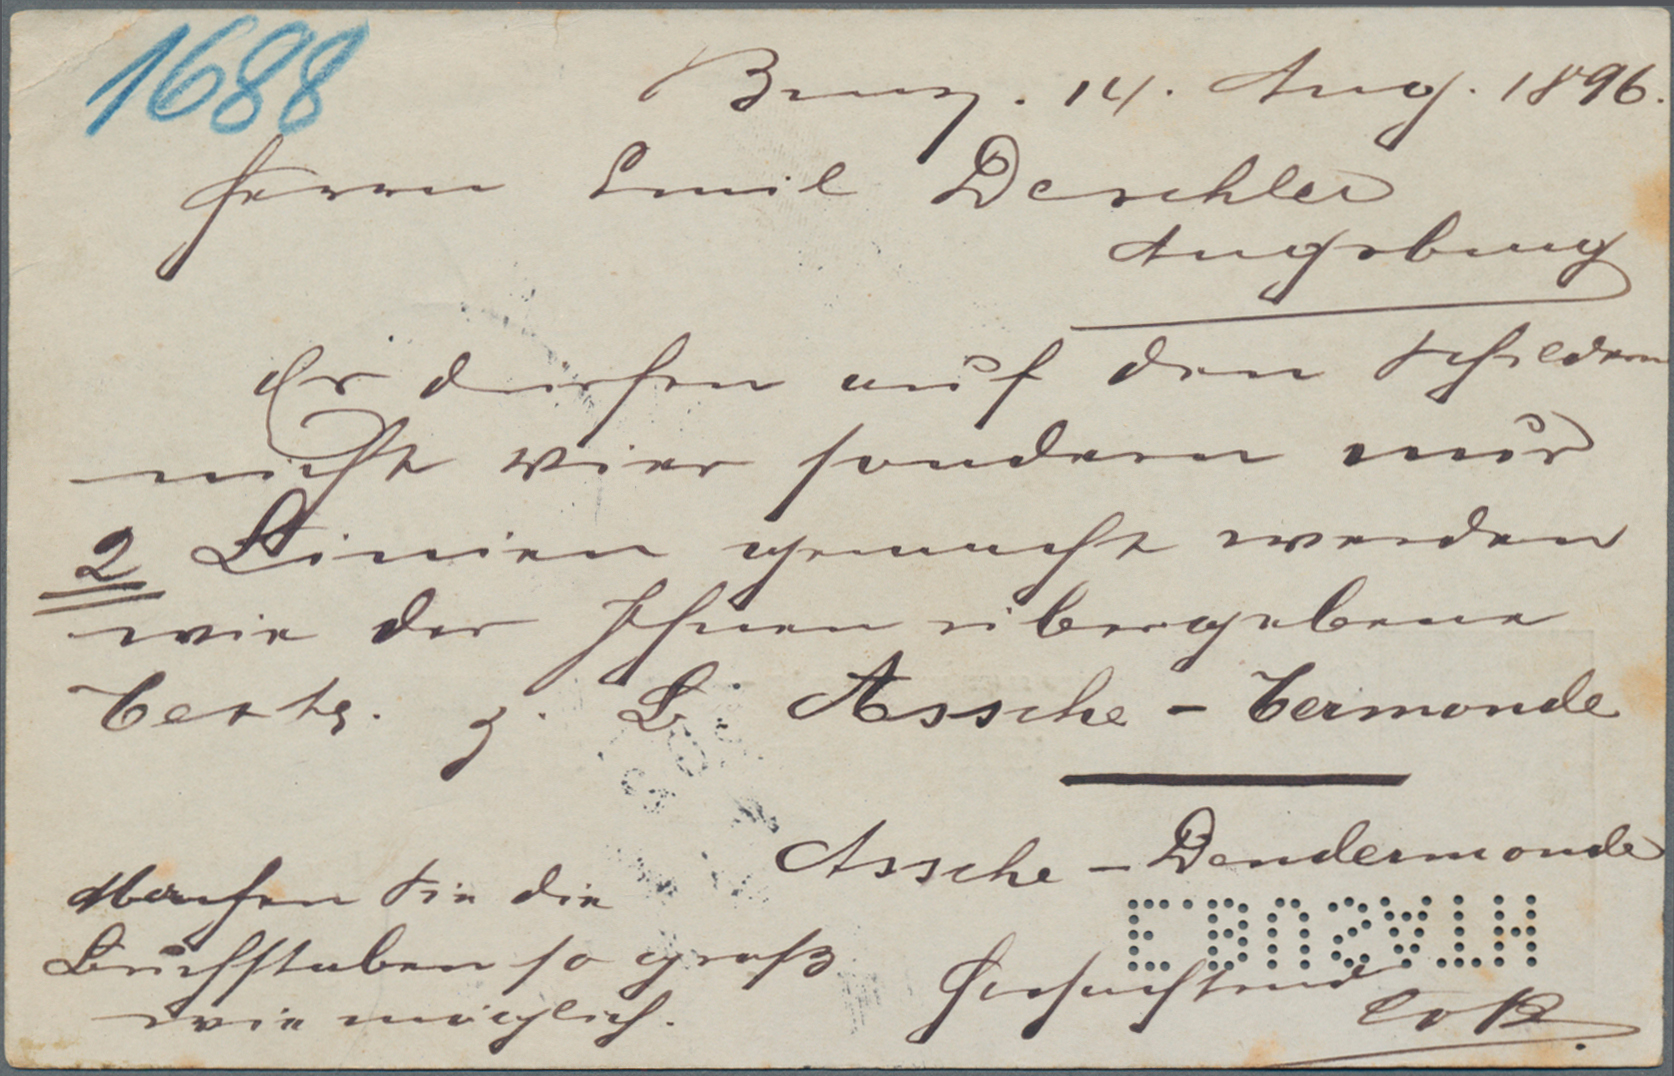 1688
14. Aug. 1896.
Herrn Emil Deschler
Augsburg
Es dürfen auf den Schildern
nicht vier sondern nur
2 Linien gemacht werden
wie der Ihnen übergebene
z. B. Assche - Termonde
Assche - Dendermonde
Machen Sie die
Buchstaben so groß
wie möglich.
Hochachtend